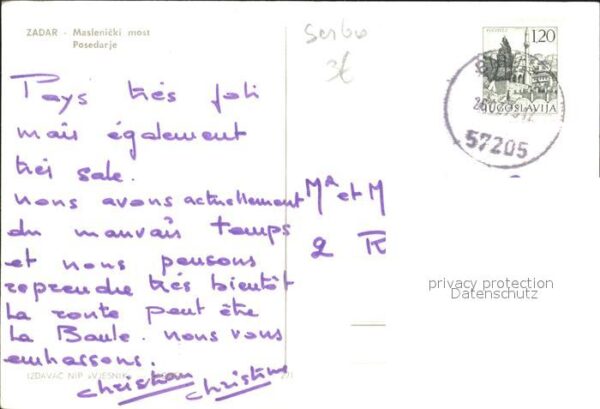 ZADAR - Maslenički most
Posedarje
Serbo
36
1,20
POČITELJ
JUGOSLAVIJA
57205
Pays très joli
mais également
très sale.
nous avons actuellement
du mauvais temps
et nous pensons
reprendre très bientôt
la route peut être
La Baule. nous vous
embrassons.
christian
christine
Mr et M
2 R
privacy protection
Datenschutz
IZDAVAČ NIP »VJESNIK«